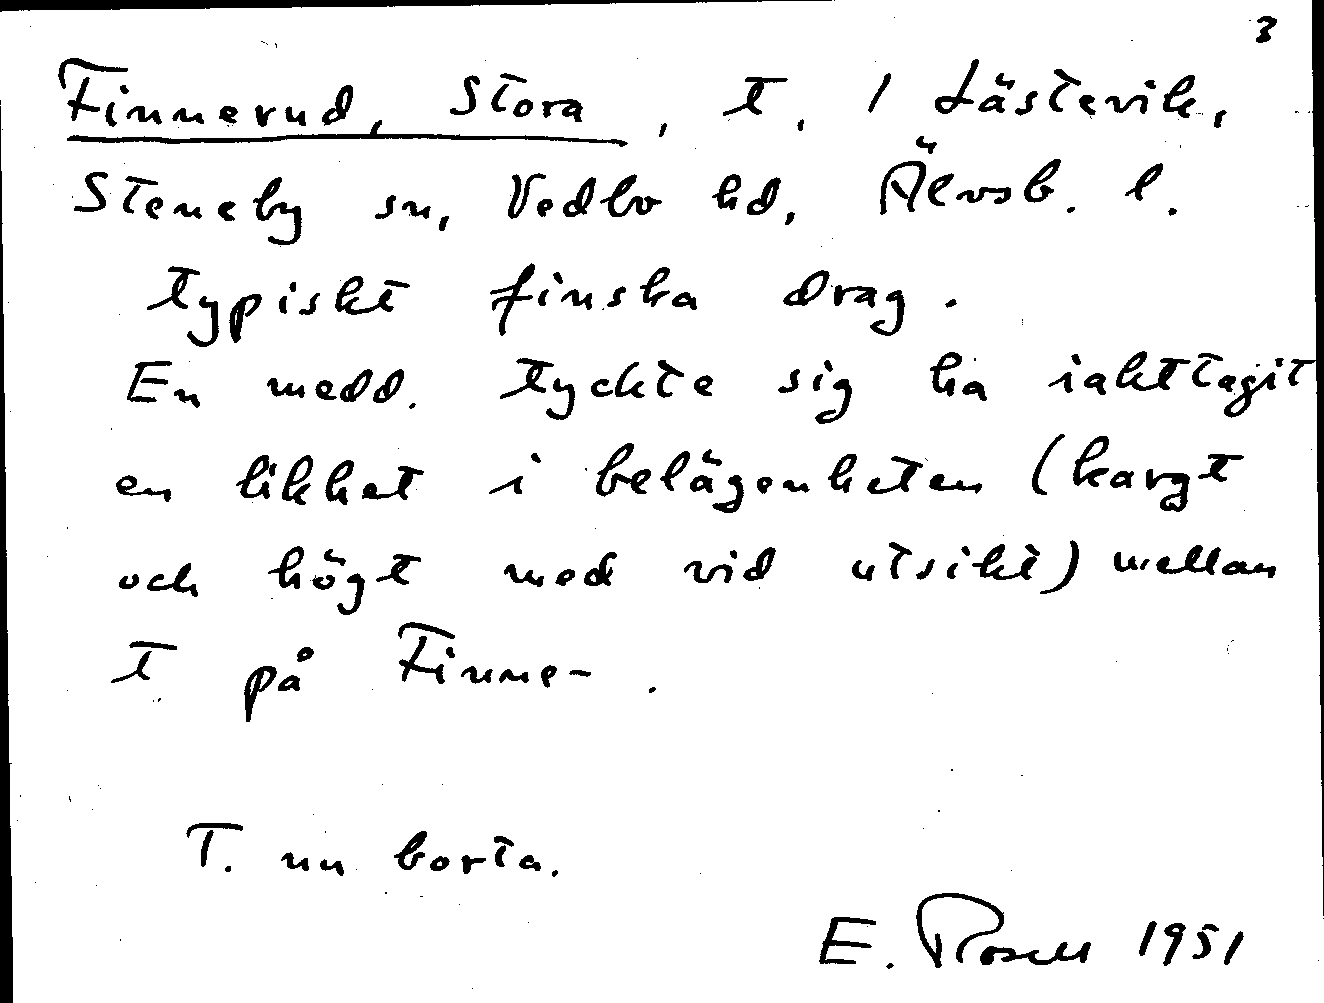 3
Finnerud, Stora, t. / Lästevik,
Steneby sn, Vedbo hd, Älvsb. l.
typiskt finska drag.
En medd. tyckte sig ha iakttagit
en likhet i belägenheten (kargt
och högt med vid utsikt) mellan
t på Finne- .
T. nu borta.
E. Rosell 1951